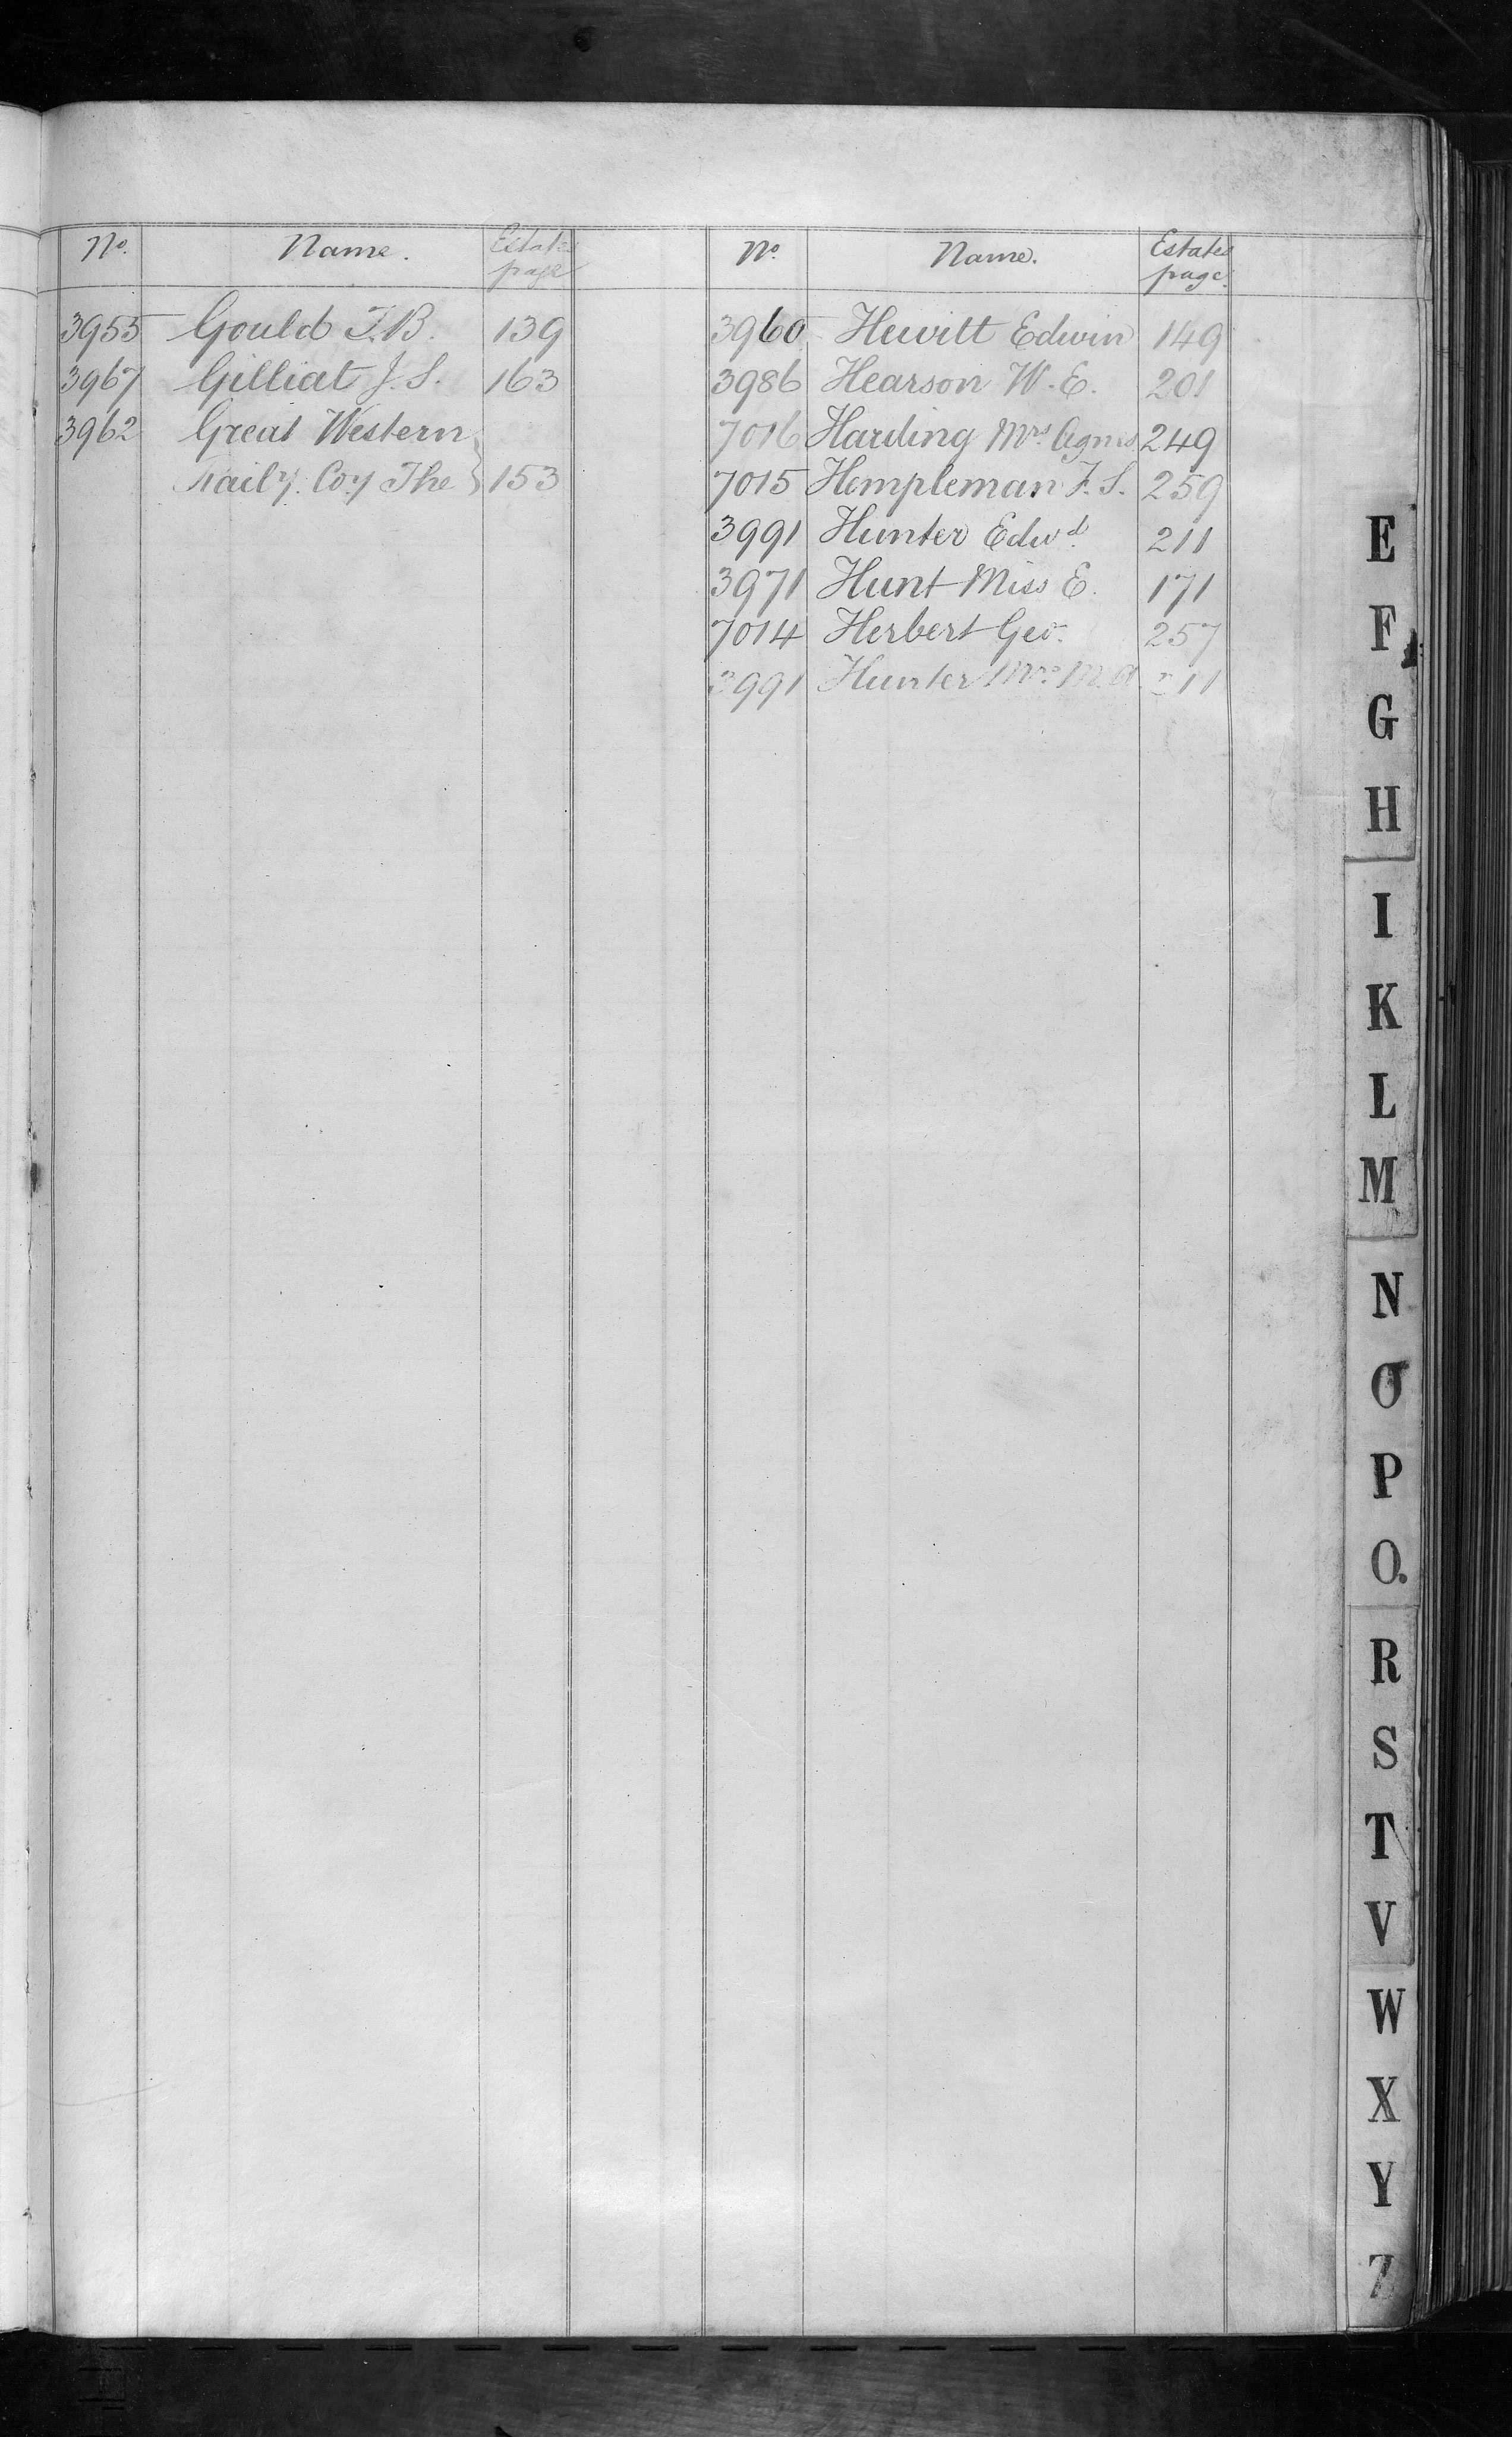 No. Name. Estates page
3955 Gould T.B. 139
3967 Gilliat J.S. 163
3962 Great Western
Raily. Coy The 153
No. Name. Estates page.
3960 Hewitt Edwin 149
3986 Hearson W.E. 201
7016 Harding Mrs Agnes 249
7015 Hempleman F.S. 259
3991 Hunter Edwd. 211
3971 Hunt Miss E. 171
7014 Herbert Geo. 257
3991 Hunter Mrs M.A 211
E
F
G
H
I
K
L
M
N
O
P
Q.
R
S
T
V
W
X
Y
Z